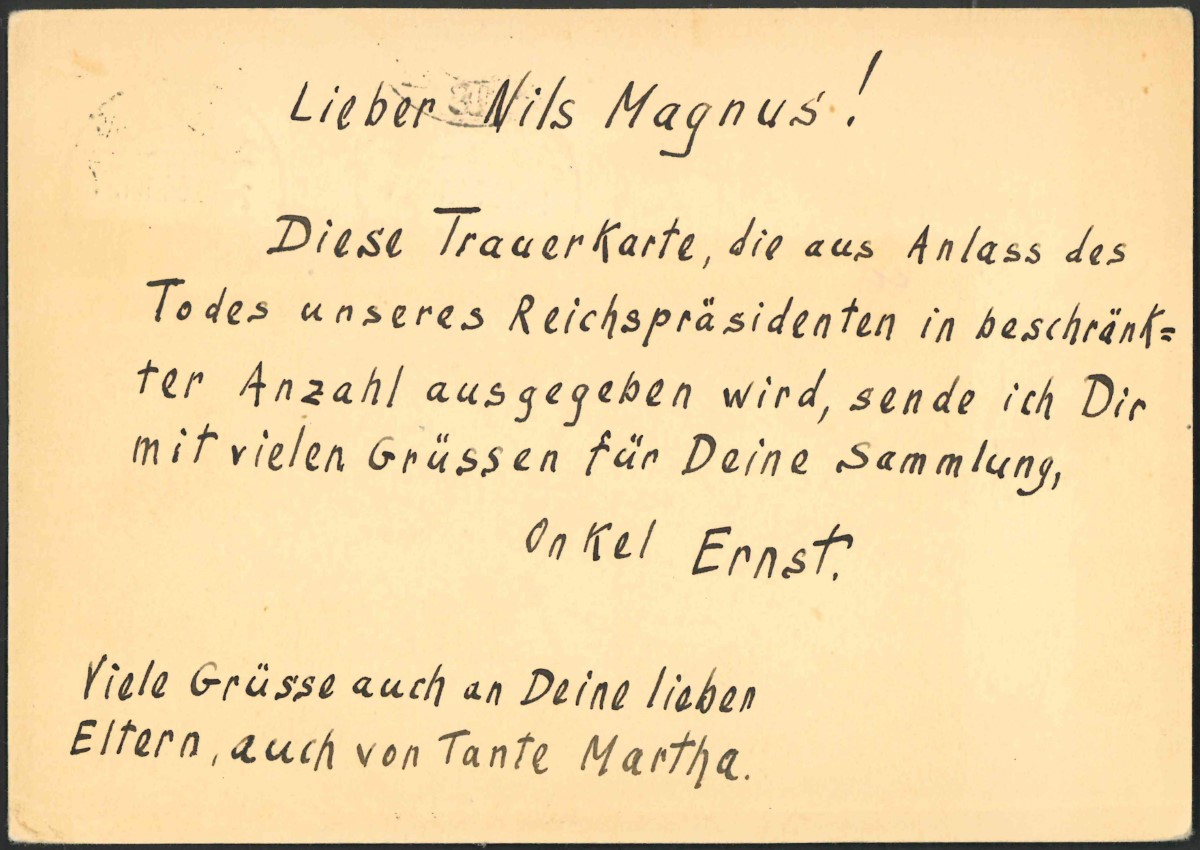 Lieber Nils Magnus!
Diese Trauerkarte, die aus Anlass des
Todes unseres Reichspräsidenten in beschränk=
ter Anzahl ausgegeben wird, sende ich Dir
mit vielen Grüssen für Deine Sammlung,
Onkel Ernst.
Viele Grüsse auch an Deine lieben
Eltern, auch von Tante Martha.